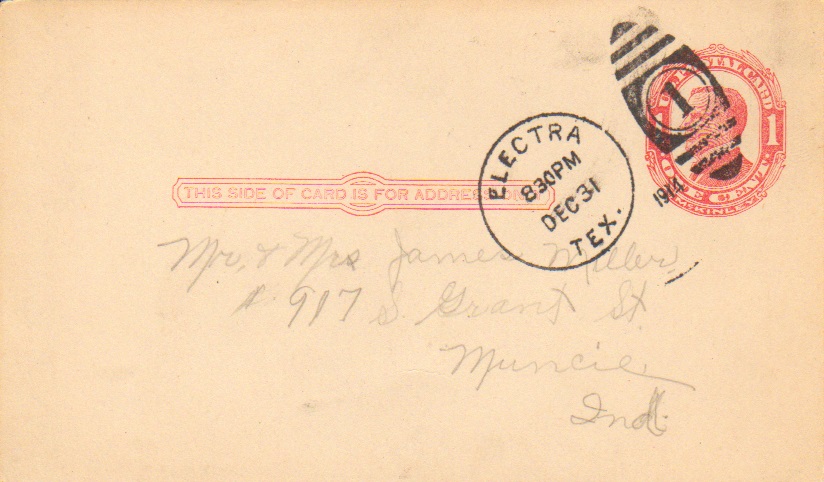 U.S. POSTAL CARD
1
1
ONE CENT
McKINLEY
ELECTRA
830PM
DEC 31
TEX.
THIS SIDE OF CARD IS FOR ADDRESS ONLY
Mr. & Mrs James Miller
917 S. Grant St.
Muncie
Ind.